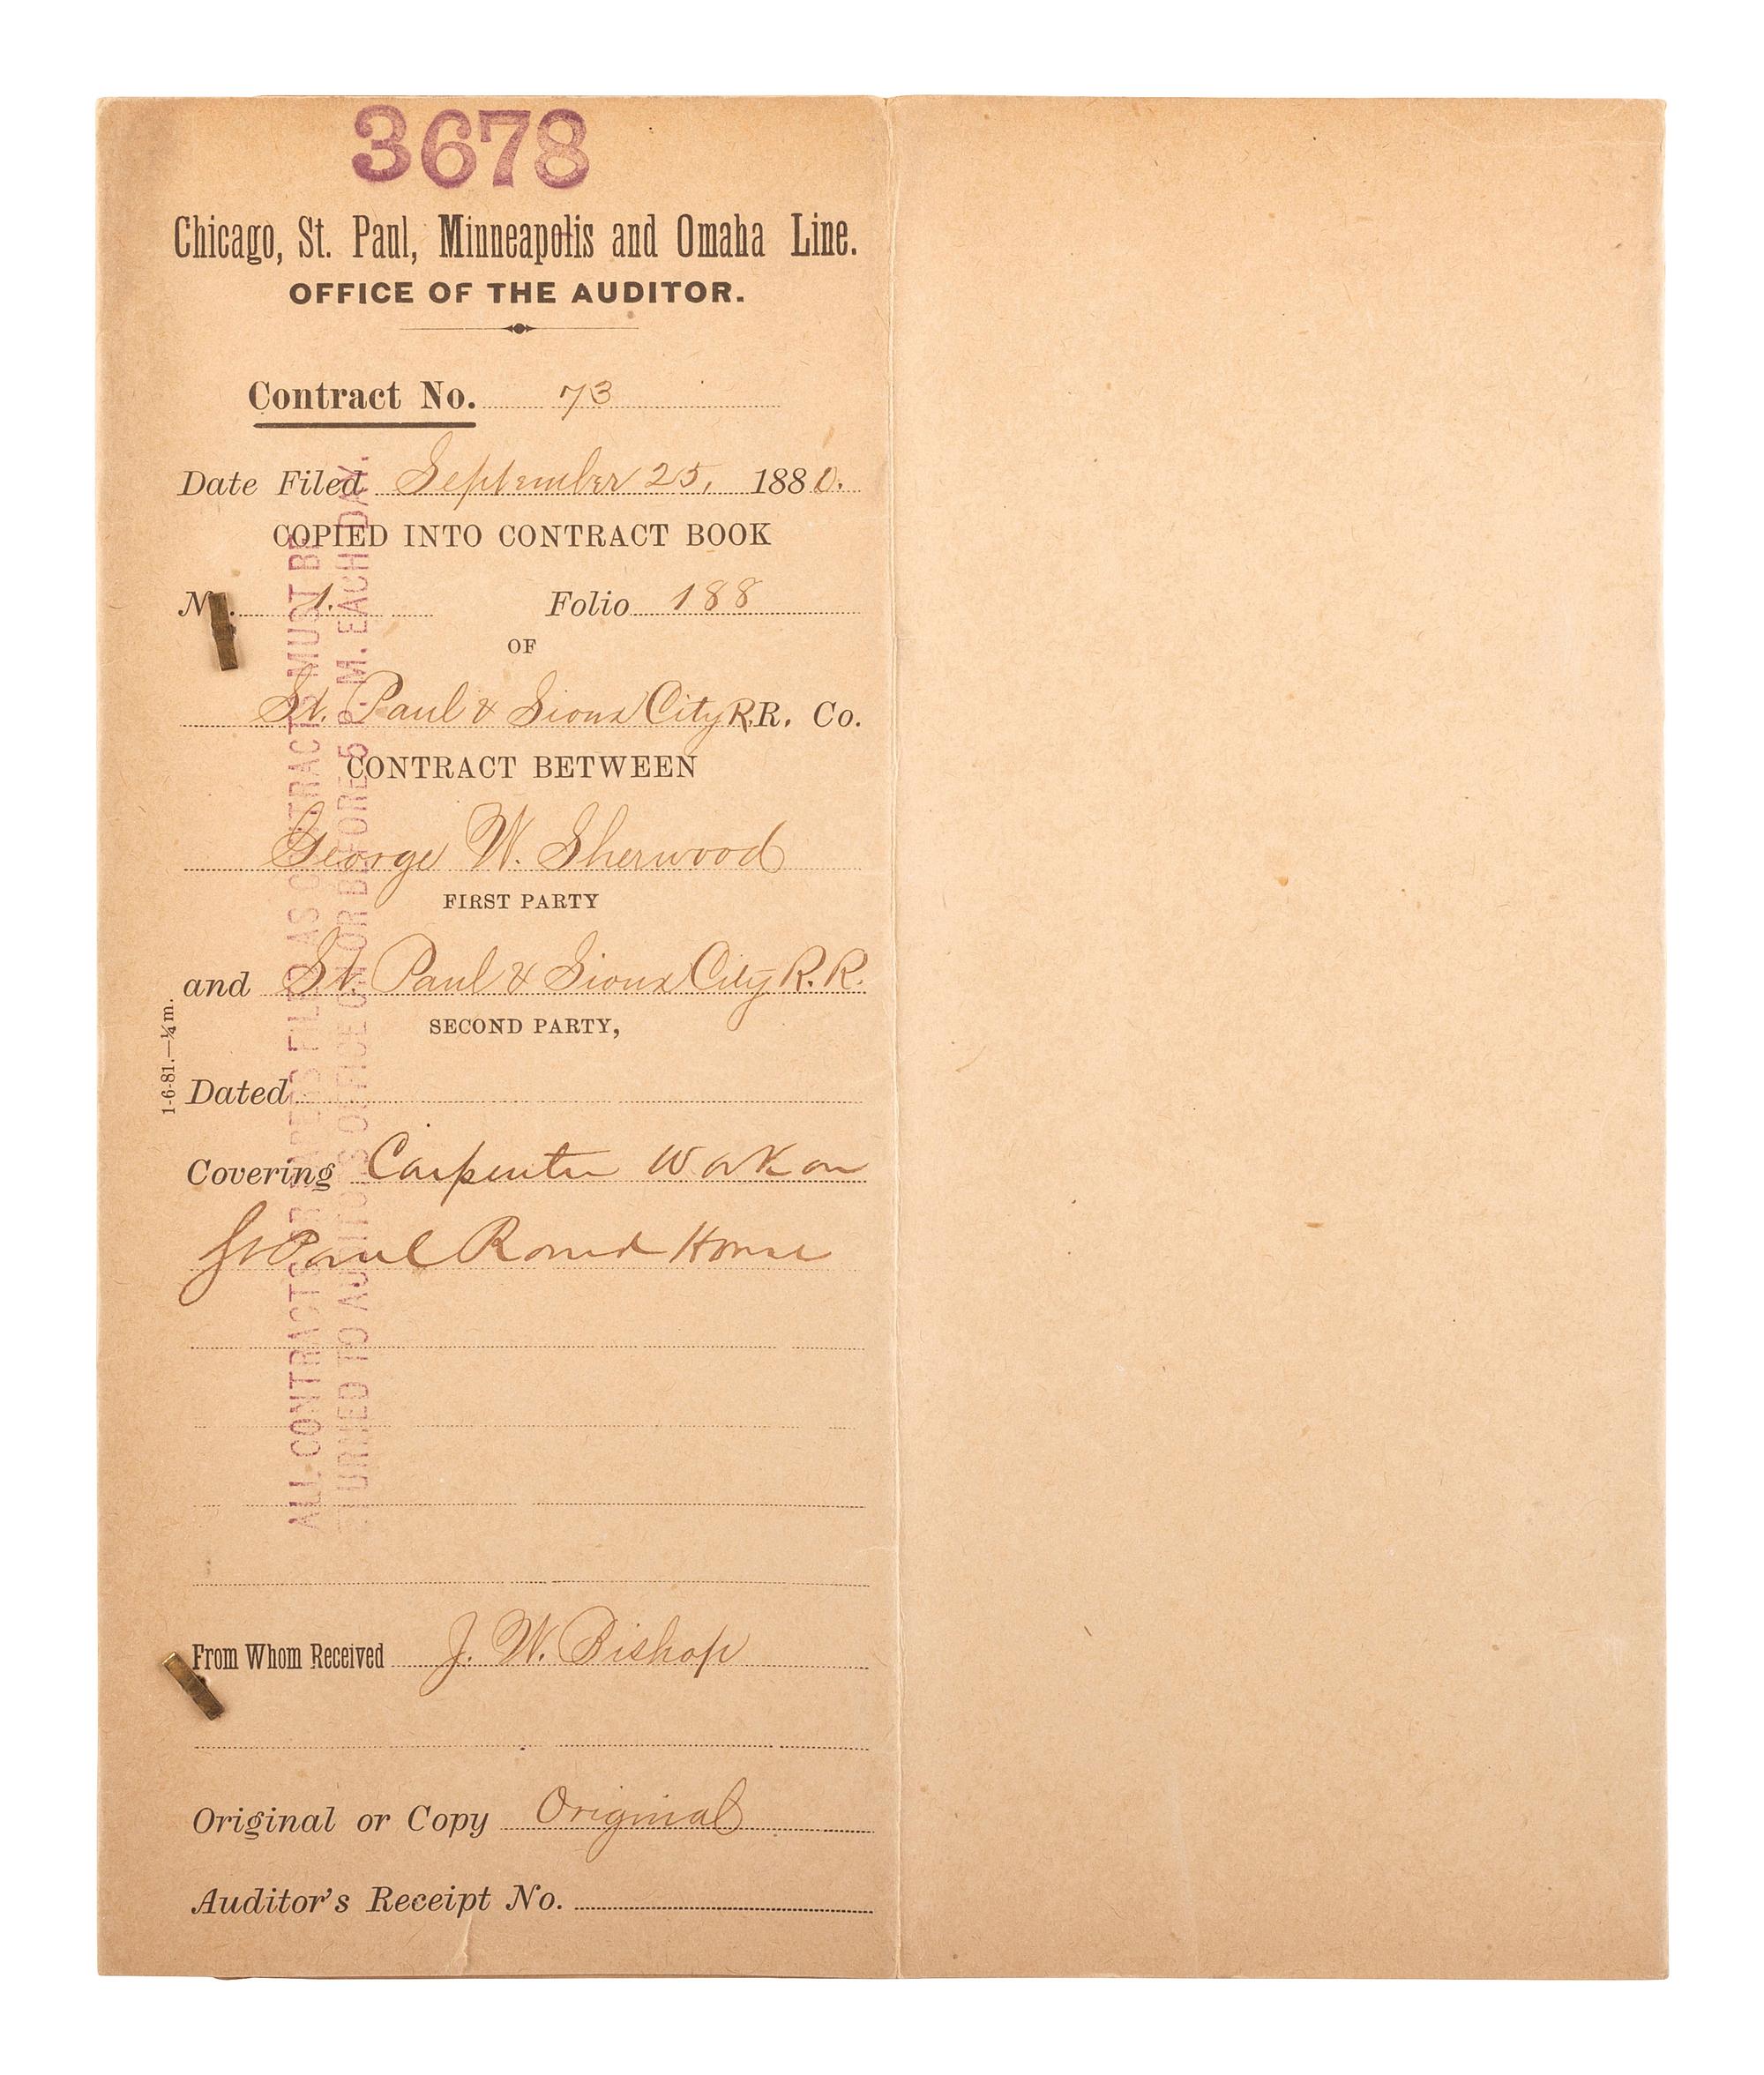 3678
Chicago, St. Paul, Minneapolis and Omaha Line.
OFFICE OF THE AUDITOR.
Contract No. 73
Date Filed September 25, 1880.
COPIED INTO CONTRACT BOOK
No. 1. Folio 188
OF
St. Paul & Sioux City R.R. Co.
CONTRACT BETWEEN
George W. Sherwood
FIRST PARTY
and St. Paul & Sioux City R.R.
SECOND PARTY,
Dated
Covering Carpenter Work on
St Paul Round House
From Whom Received J. W. Bishop
Original or Copy Original
Auditor's Receipt No.
1-6-81.—¼m.
ALL CONTRACTS OR PAPERS FILED AS CONTRACTS MUST BE
RETURNED TO AUDITOR'S OFFICE ON OR BEFORE 5 P. M. EACH DAY.